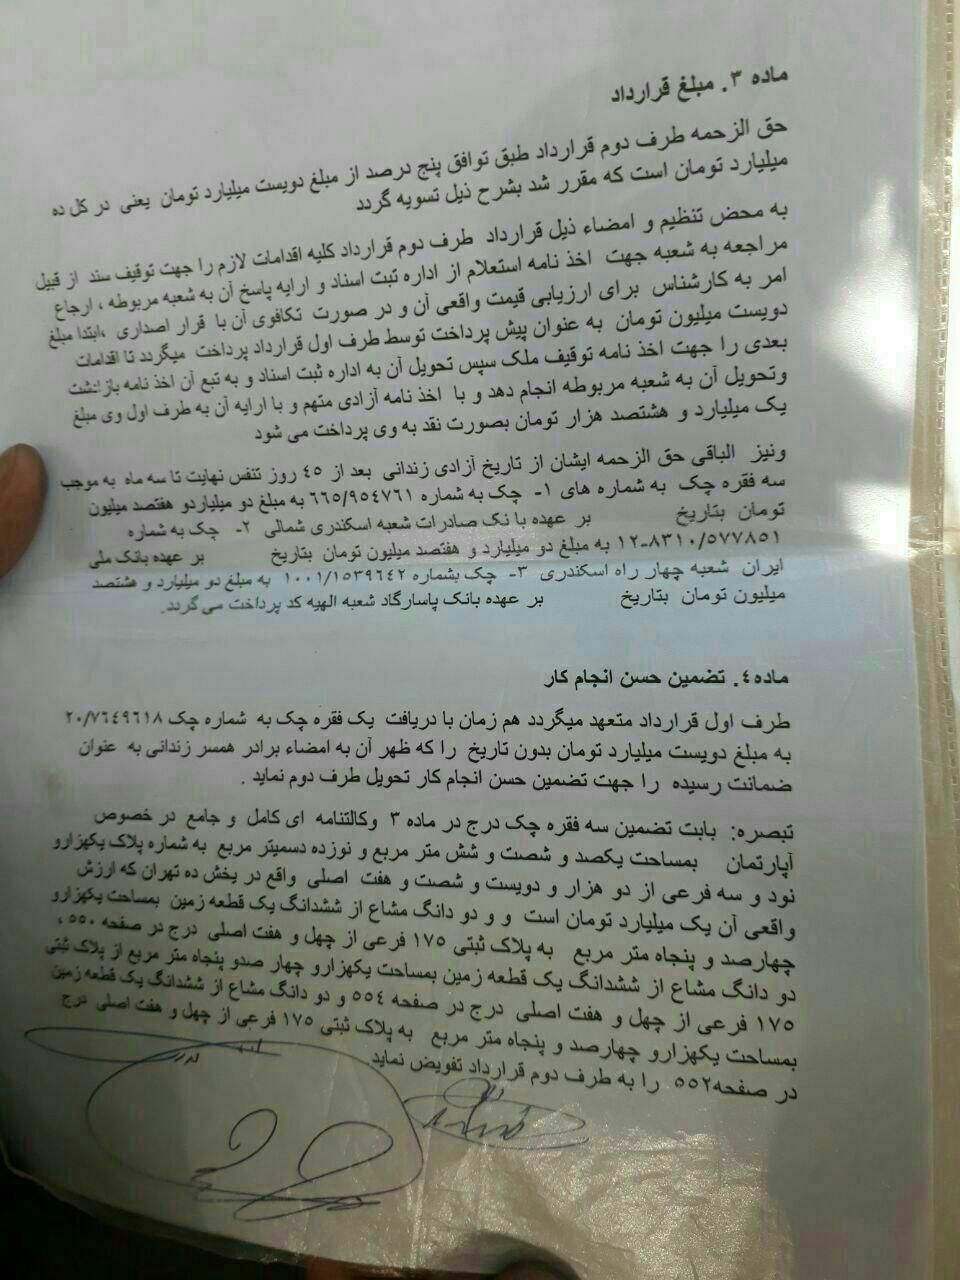 ماده ۳. مبلغ قرارداد
حق الزحمه طرف دوم قرارداد طبق توافق پنج درصد از مبلغ دویست میلیارد تومان یعنی در کل ده
میلیارد تومان است که مقرر شد بشرح ذیل تسویه گردد
به محض تنظیم و امضاء ذیل قرارداد طرف دوم قرارداد کلیه اقدامات لازم را جهت توقیف سند از قبیل
مراجعه به شعبه جهت اخذ نامه استعلام از اداره ثبت اسناد و ارایه پاسخ آن به شعبه مربوطه ، ارجاع
امر به کارشناس برای ارزیابی قیمت واقعی آن و در صورت تکافوی آن با قرار اصداری ،ابتدا مبلغ
دویست میلیون تومان به عنوان پیش پرداخت توسط طرف اول قرارداد پرداخت میگردد تا اقدامات
بعدی را جهت اخذ نامه توقیف ملک سپس تحویل آن به اداره ثبت اسناد و به تبع آن اخذ نامه بازداشت
وتحویل آن به شعبه مربوطه انجام دهد و با اخذ نامه آزادی متهم و با ارایه آن به طرف اول وی مبلغ
یک میلیارد و هشتصد هزار تومان بصورت نقد به وی پرداخت می شود
ونیز الباقی حق الزحمه ایشان از تاریخ آزادی زندانی بعد از ۴۵ روز تنفس نهایت تا سه ماه به موجب
سه فقره چک به شماره های ۱- چک به شماره ۶۶۵/۹۵۴۷۶۱ به مبلغ دو میلیاردو هفتصد میلیون
تومان بتاریخ بر عهده بانک صادرات شعبه اسکندری شمالی ۲- چک به شماره
۱۲-۸۳۱۰/۵۷۷۸۵۱ به مبلغ دو میلیارد و هفتصد میلیون تومان بتاریخ بر عهده بانک ملی
ایران شعبه چهار راه اسکندری ۳- چک بشماره ۱۰۰۱/۱۵۳۹۶۴۲ به مبلغ دو میلیارد و هشتصد
میلیون تومان بتاریخ بر عهده بانک پاسارگاد شعبه الهیه کد پرداخت می گردد.
ماده۴. تضمین حسن انجام کار
طرف اول قرارداد متعهد میگردد هم زمان با دریافت یک فقره چک به شماره چک ۲۰/۷۶۴۹۶۱۸
به مبلغ دویست میلیارد تومان بدون تاریخ را که ظهر آن به امضاء برادر همسر زندانی به عنوان
ضمانت رسیده را جهت تضمین حسن انجام کار تحویل طرف دوم نماید .
تبصره: بابت تضمین سه فقره چک درج در ماده ۳ وکالتنامه ای کامل و جامع در خصوص
آپارتمان بمساحت یکصد و شصت و شش متر مربع و نوزده دسمیتر مربع به شماره پلاک یکهزارو
نود و سه فرعی از دو هزار و دویست و شصت و هفت اصلی واقع در بخش ده تهران که ارزش
واقعی آن یک میلیارد تومان است و و دو دانگ مشاع از ششدانگ یک قطعه زمین بمساحت یکهزارو
چهارصد و پنجاه متر مربع به پلاک ثبتی ۱۷۵ فرعی از چهل و هفت اصلی درج در صفحه ۵۵۰ ،
دو دانگ مشاع از ششدانگ یک قطعه زمین بمساحت یکهزارو چهار صدو پنجاه متر مربع از پلاک ثبتی
۱۷۵ فرعی از چهل و هفت اصلی درج در صفحه ۵۵۴ و دو دانگ مشاع از ششدانگ یک قطعه زمین
بمساحت یکهزارو چهارصد و پنجاه متر مربع به پلاک ثبتی ۱۷۵ فرعی از چهل و هفت اصلی درج
در صفحه۵۵۲ را به طرف دوم قرارداد تفویض نماید.